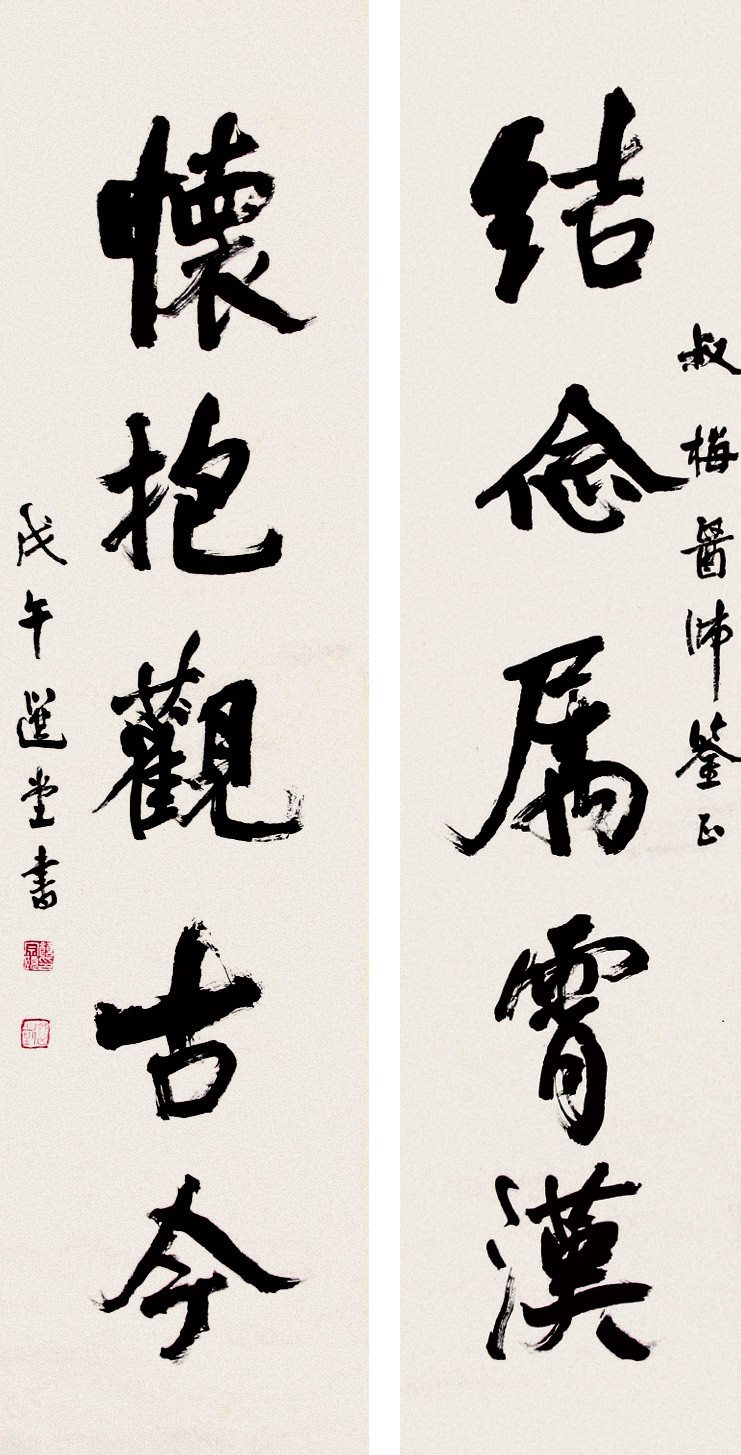 叔梅醫師鑒正
结念属霄漢
懷抱觀古今
戊午選堂書